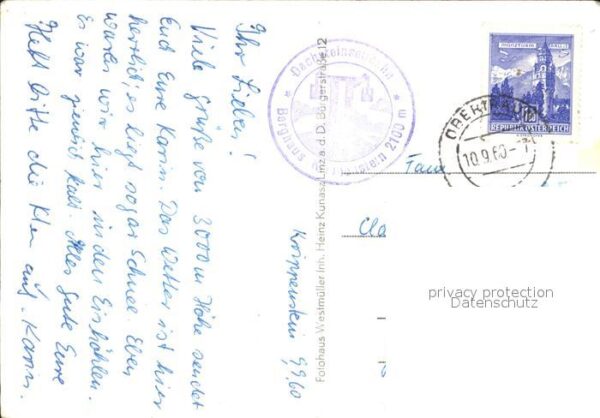 Krippenstein 9.9.60
Ihr Lieben!
Viele Grüße von 3000 m Höhe sendet
Euch Eure Karin. Das Wetter ist hier
herrlich, es liegt sogar Schnee. Eben
waren wir hier in den Eishöhlen.
Es war ganz kalt. Alles Gute Eure
Hebt bitte die Ktn auf. Karin.
Dachsteinseilbahn
Berghaus 2100 m
Fotohaus Westmüller Inh. Heinz Kunasa Linz a. d. D. Bürgerstraße 12
REPUBLIK ÖSTERREICH
OBERTRAUN
10.9.60
Fam
Cla
privacy protection
Datenschutz